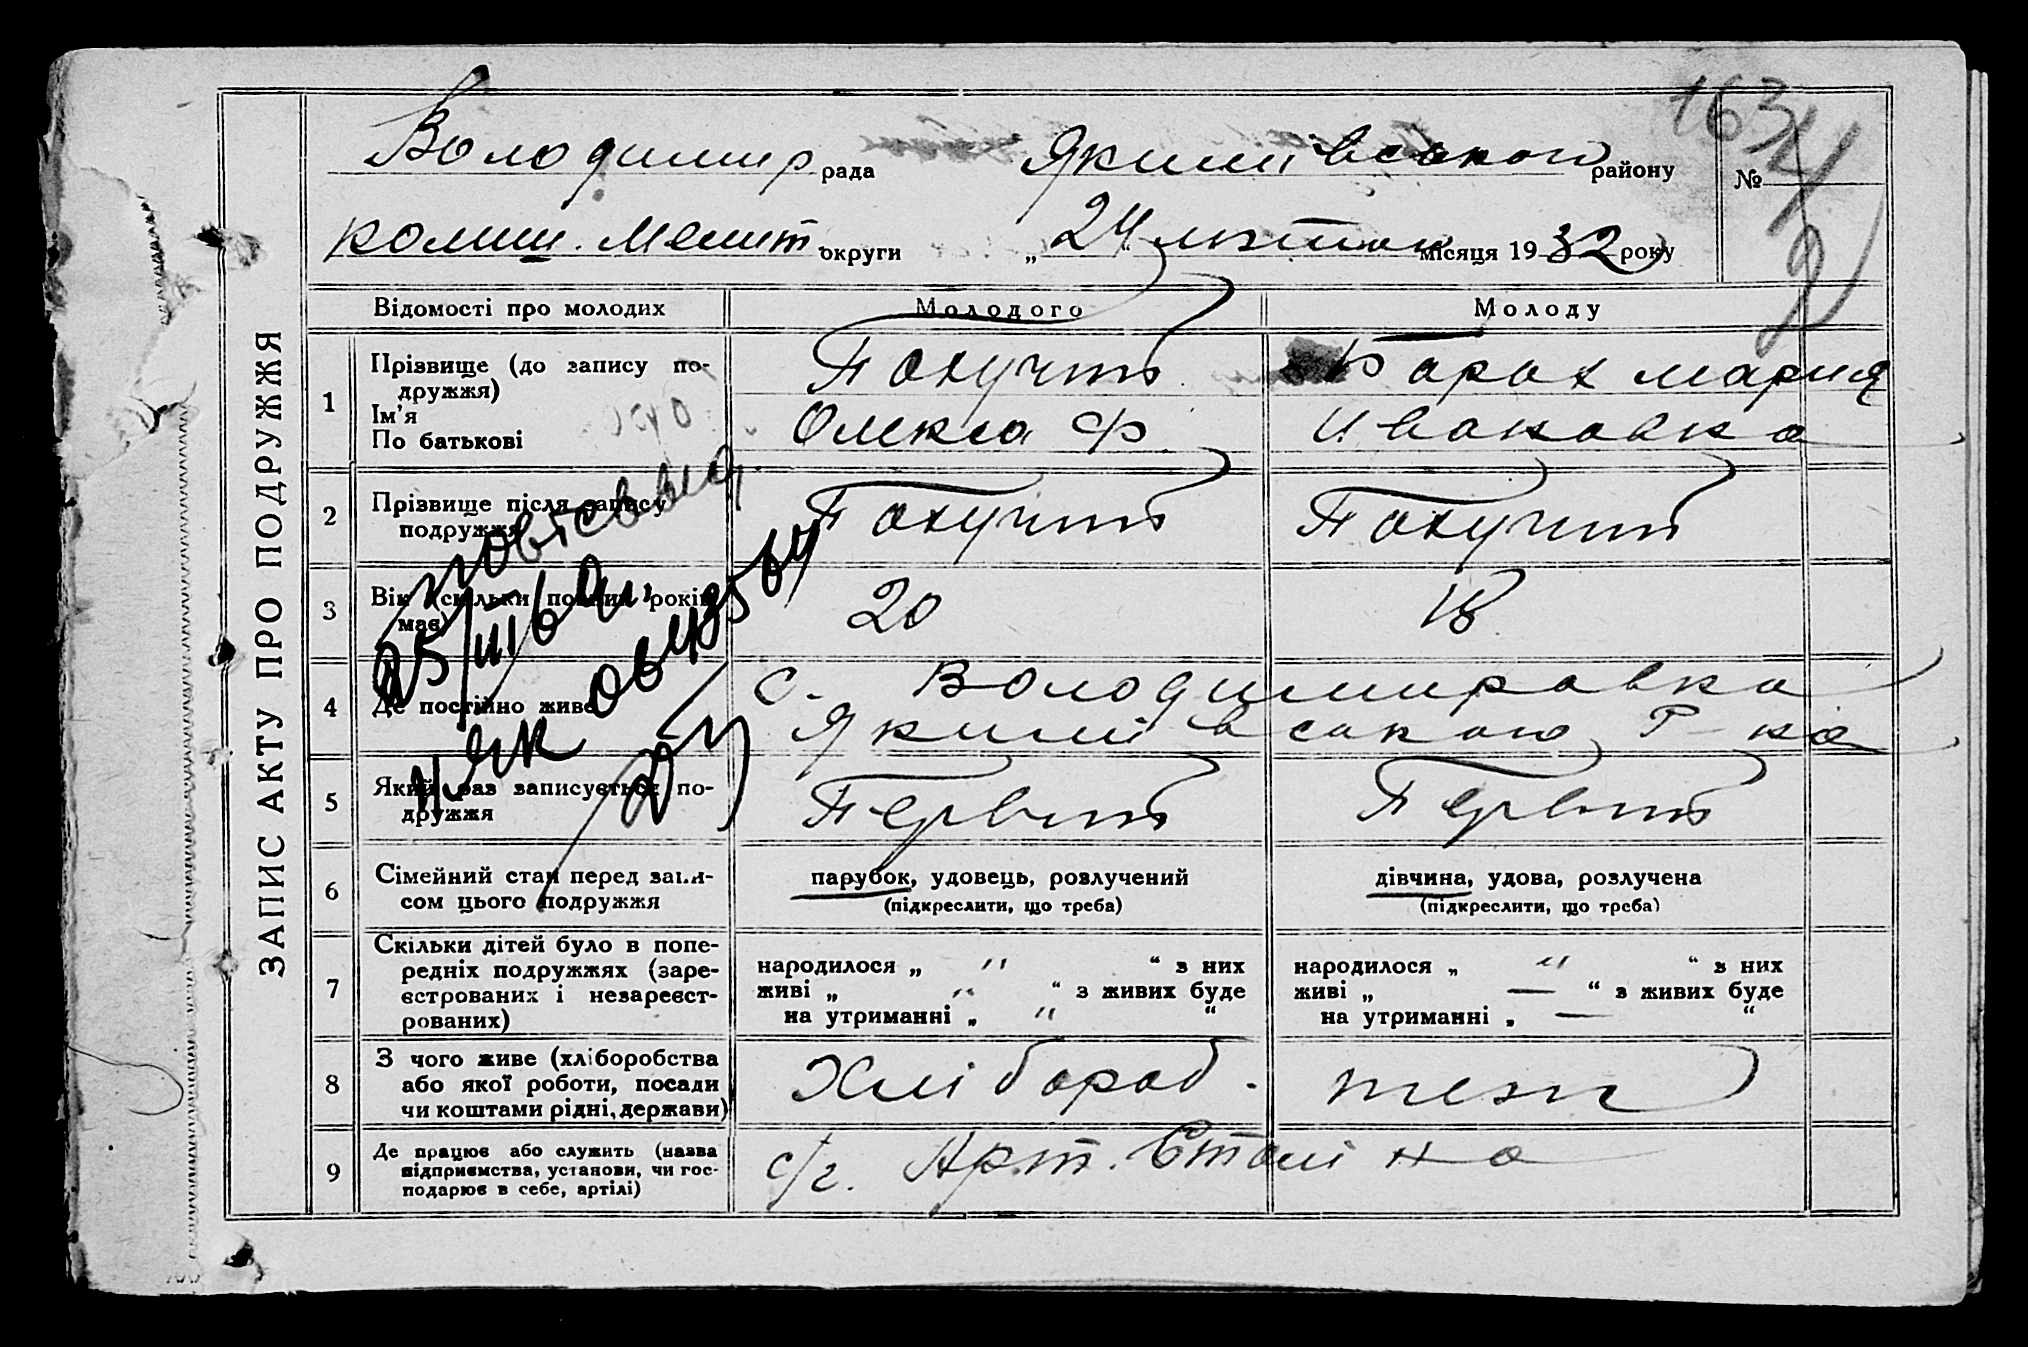 ЗАПИС АКТУ ПРО ПОДРУЖЖЯ
163
Володимир рада Якимівського району №
колиш. Меліт округи „24“ лютого місяця 1932 року
2
Відомості про молодих Молодого Молоду
1 Прізвище (до запису подружжя)
Ім'я
По батькові
Похучий
Олекса Ф
Барах Мария
Ивановна
2 Прізвище після запису подружжя
Похучий Похучий
3 Вік (скільки повних років має)
20 18
4 Де постійно живе
с. Володимировка
Якимівського Р-ка
5 Який раз записується подружжя
Первий Первий
6 Сімейний стан перед записом цього подружжя
парубок, удовець, розлучений
(підкреслити, що треба)
дівчина, удова, розлучена
(підкреслити, що треба)
7 Скільки дітей було в попередніх подружжях (зареєстрованих і незареєстрованих)
народилося „ " “ з них
живі „ " “ з живих буде
на утриманні „ " “
народилося „ " “ з них
живі „ — “ з живих буде
на утриманні „ — “
8 З чого живе (хліборобства
або якої роботи, посади
чи коштами рідні, держави)
Хлібороб. теж
9 Де працює або служить (назва
підприємства, установи, чи господарює в себе, артілі)
с/г. Арт. Сталіна
25/III